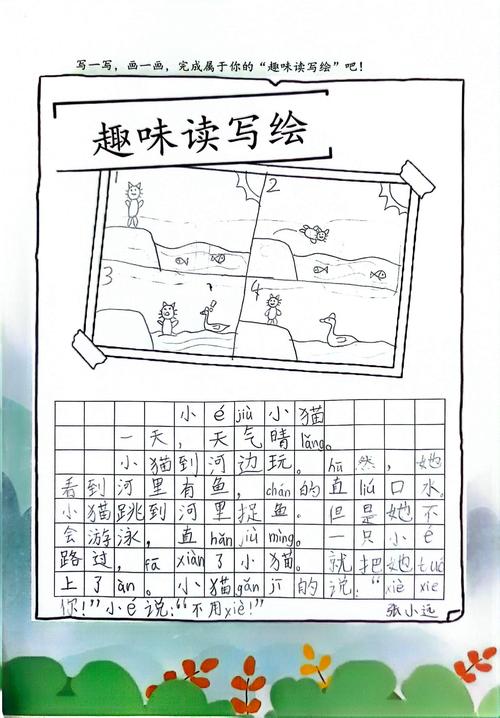 写一写，画一画，完成属于你的“趣味读写绘”吧！
趣味读写绘
1
2
3
4
小é jiù小猫
一天，天气晴lǎng。
小猫到河边玩。hū然，她
看到河里有鱼，chán的直liú口水。
小猫跳到河里捉鱼。但是她不
会游泳，直hǎn jiù mìng。一只小é
路过，fā xiàn了小猫。就把她tuō
上了àn。小猫gǎn jī的说：“xiè xie
你！”小é说：“不用xiè！”
张小远